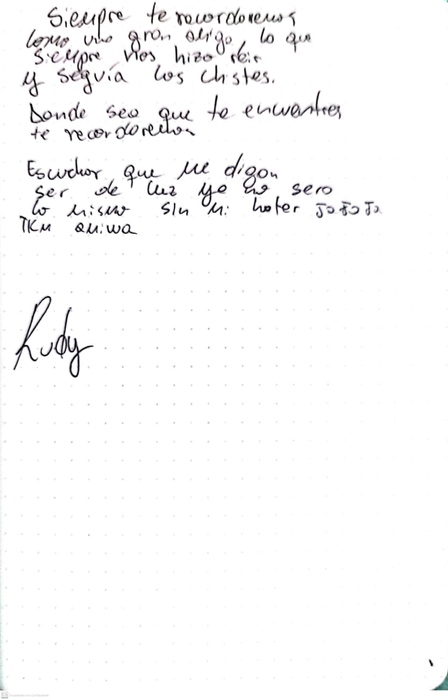 Siempre te recordaremos
como una gran amiga, la que
siempre nos hizo reir
y seguía los chistes.
Donde sea que te encuentres
te recordaremos
Escuchar que me digan
ser de luz ya no sera
lo mismo sin mi hater JaJaJa
TKM amiwa
Rudy